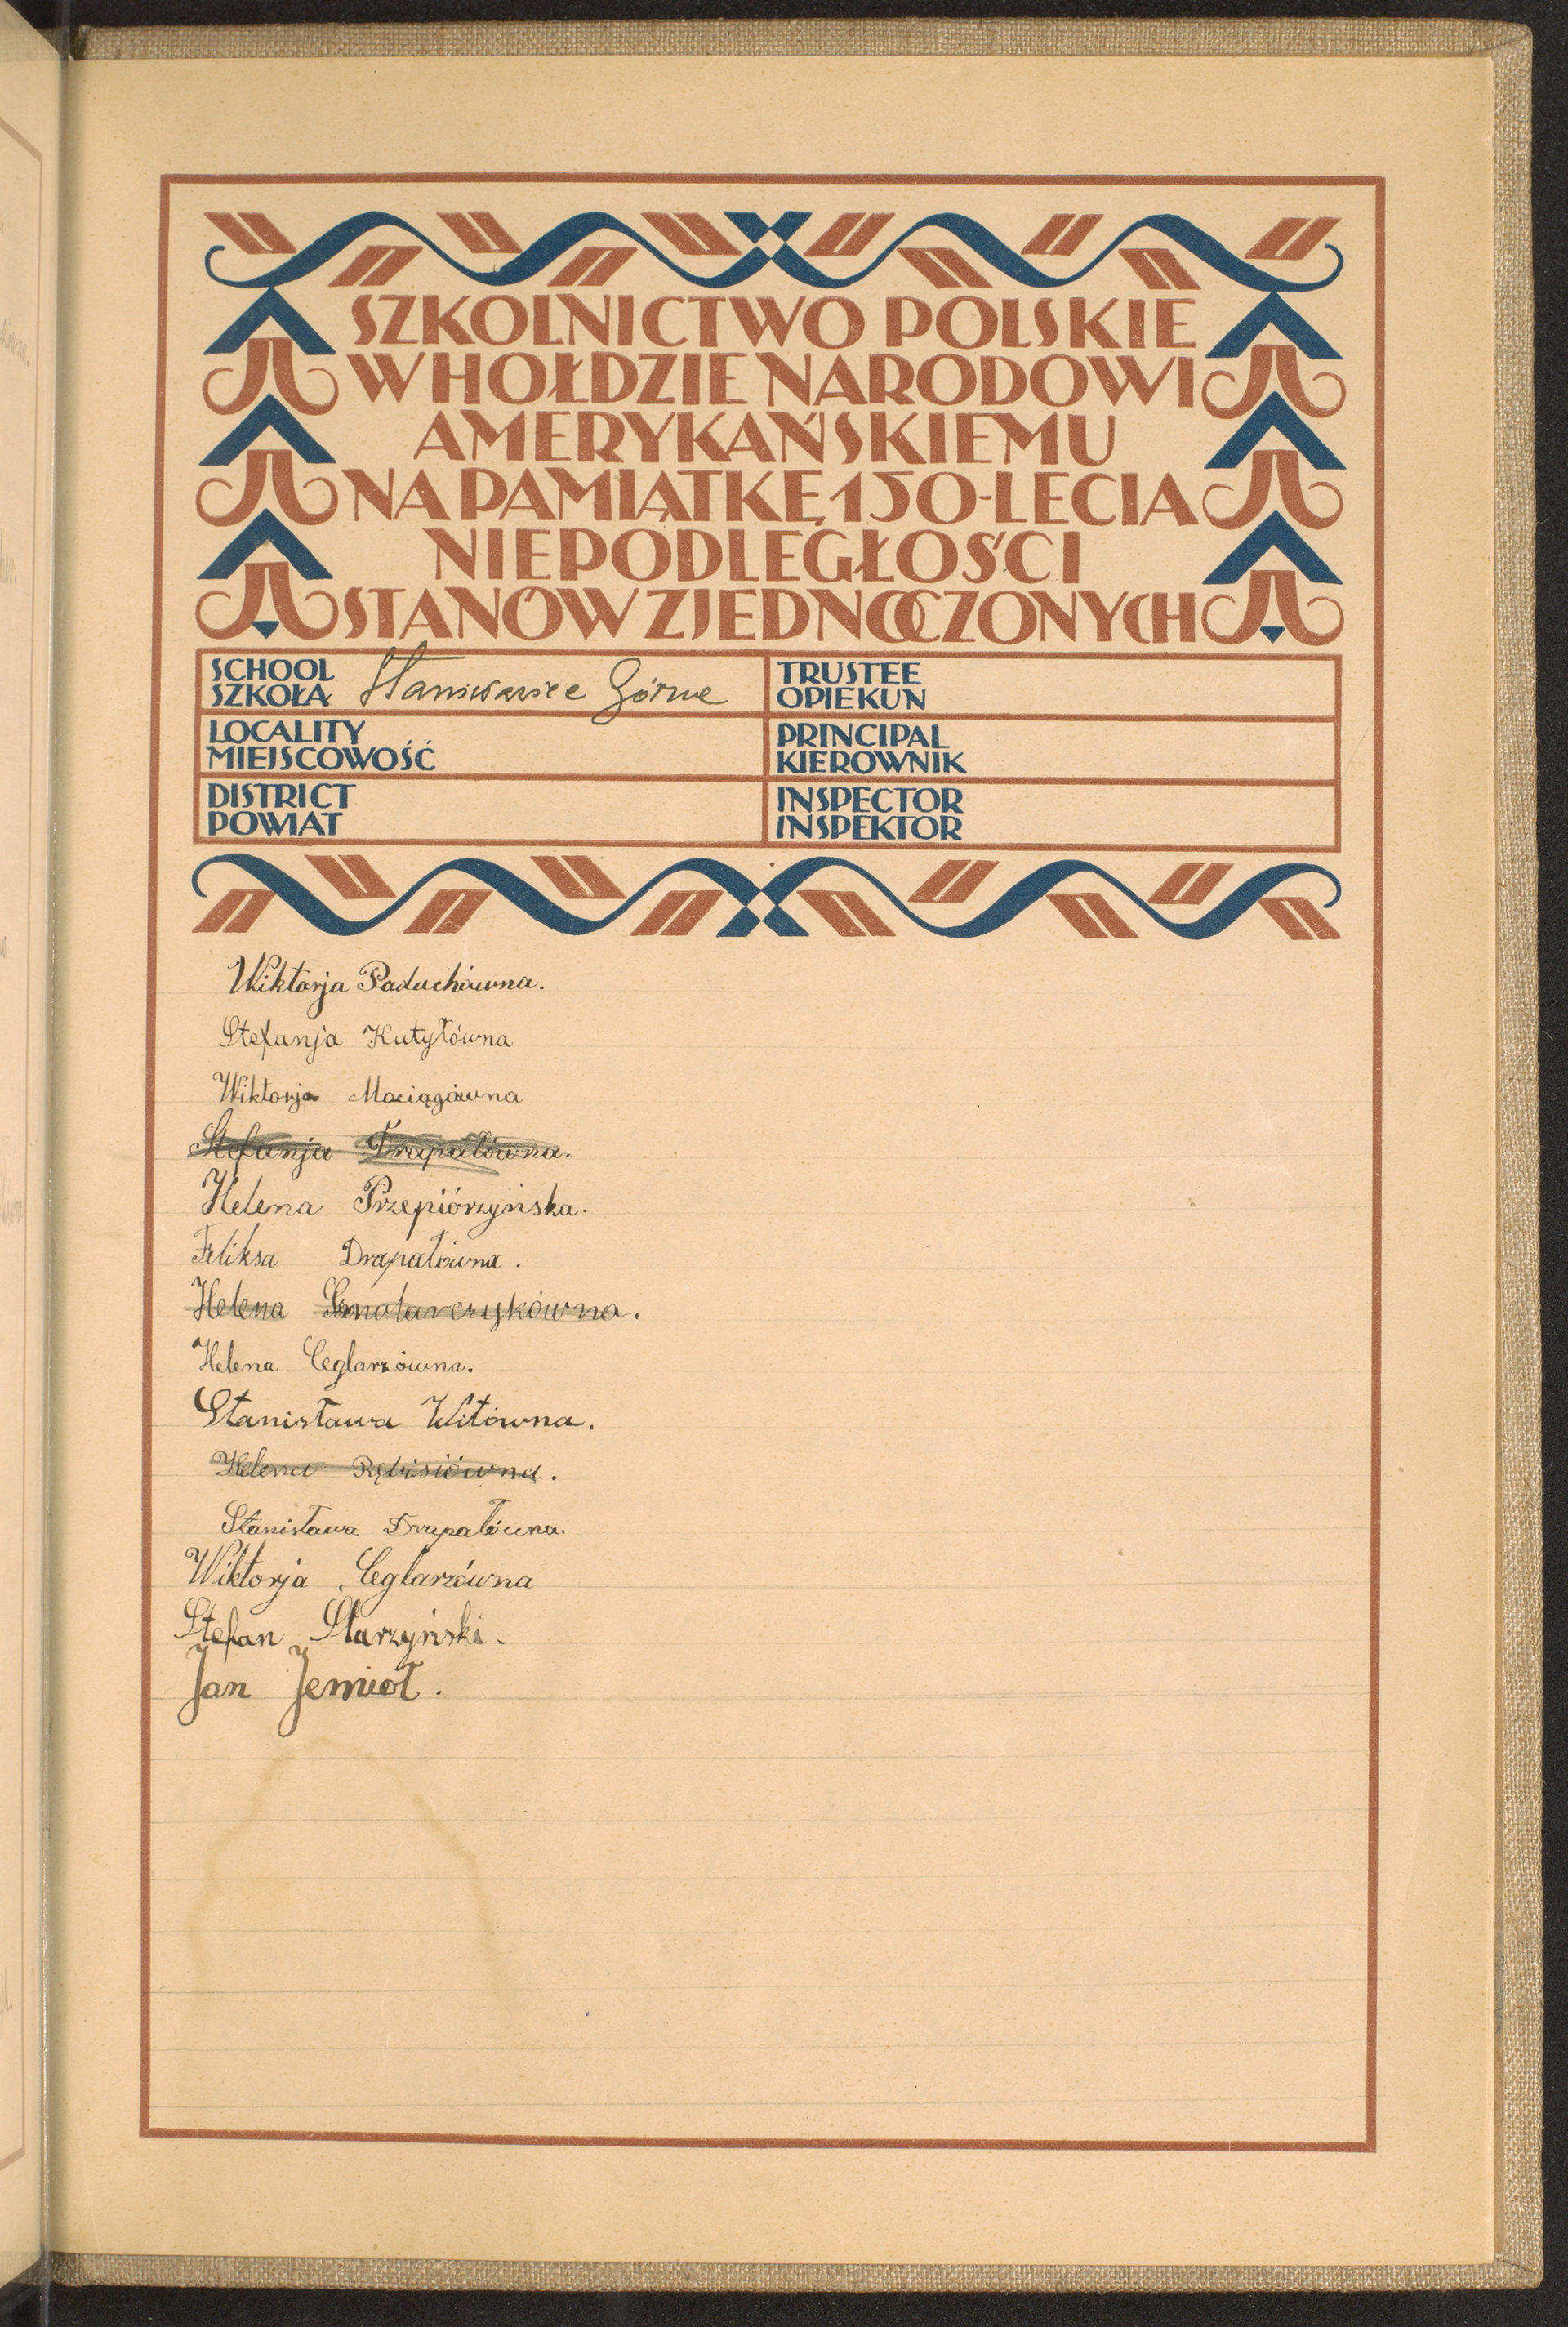 SZKOLNICTWO POLSKIE
W HOŁDZIE NARODOWI
AMERYKAŃSKIEMU
NA PAMIĄTKĘ 150-LECIA
NIEPODLEGŁOŚCI
STANÓW ZJEDNOCZONYCH
SCHOOL
SZKOŁA Stanisławice Górne
TRUSTEE
OPIEKUN
LOCALITY
MIEJSCOWOŚĆ
PRINCIPAL
KIEROWNIK
DISTRICT
POWIAT
INSPECTOR
INSPEKTOR
Wiktorja Paduchówna.
Stefanja Kutyłówna
Wiktorja Maciągówna
Stefanja Drapałówna.
Helena Przepiórzyńska.
Feliksa Drapałówna.
Helena Smolarczykówna.
Helena Ceglarzówna.
Stanisława Witówna.
Helena
Stanisława Drapałówna.
Wiktorja Ceglarzówna
Stefan Starzyński.
Jan Jemioł.